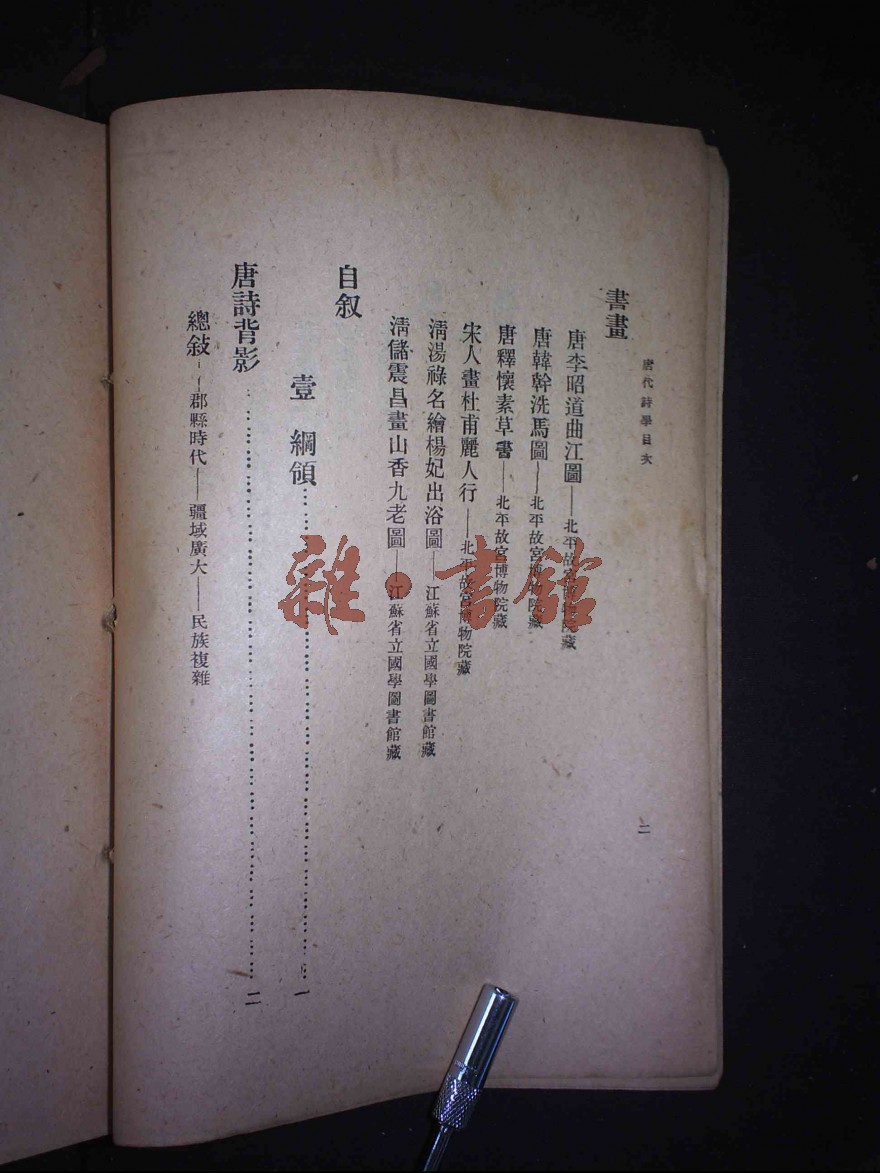 唐代詩學目次
二
書畫
唐李昭道曲江圖——北平故宮博物院藏
唐韓幹洗馬圖——北平故宮博物院藏
唐釋懷素草書——北平故宮博物院藏
宋人畫杜甫麗人行——北平故宮博物院藏
清湯祿名繪楊妃出浴圖——江蘇省立國學圖書館藏
清儲震昌畫山香九老圖——江蘇省立國學圖書館藏
自叙
壹 綱領……一
唐詩背影……二
總敍——郡縣時代——疆域廣大——民族複雜
雜·書館